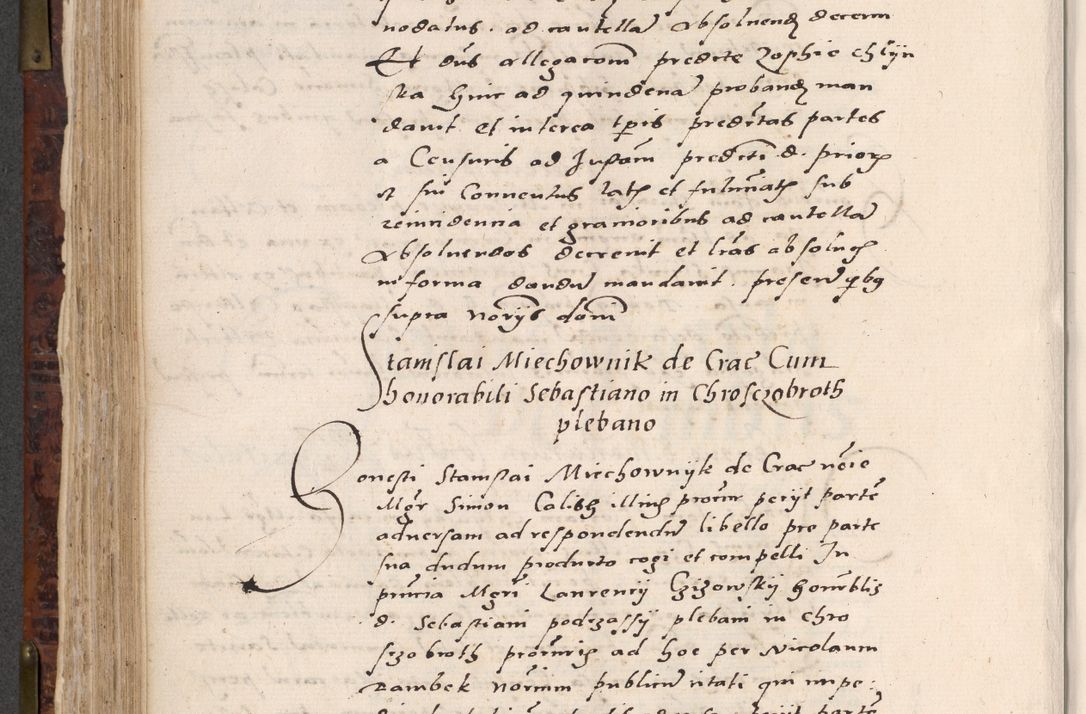 nodatus . ad cautellã absoluend decern
Et dñs allegacom predicte Zophie chlyn
ska hinc ad quindenã proband man
dauit et interea tp̃is predictas partes
a Censuris ad Inst̃am predicti d. prior
et sui Conuentus lat et fulminat sub
reincidencia et grauioribus ad cautellã
absoluendos decreuit et lrãs absolut
in forma dandũ mandauit presen qbg
supra norijs domi
Stanislai Miechownik de Crac Cum
honorabili Sebastiano in Chrosczobroth
plebano
Honesti Stanislai Miechownijk de Crac nõie
Mgr̃ Simon Calisg illius procur petijt partẽ
aduersam ad respondendũ libello pro parte
sua dudum producto cogi et compelli In
pr̃ncia Mgri Laurencij Czizowskij honorabilis
d. Sebastiani podczassij plebani in chro
sczobroth procuris ad hoc per Nicolaum
Dambek norium publicũ citati qui impe